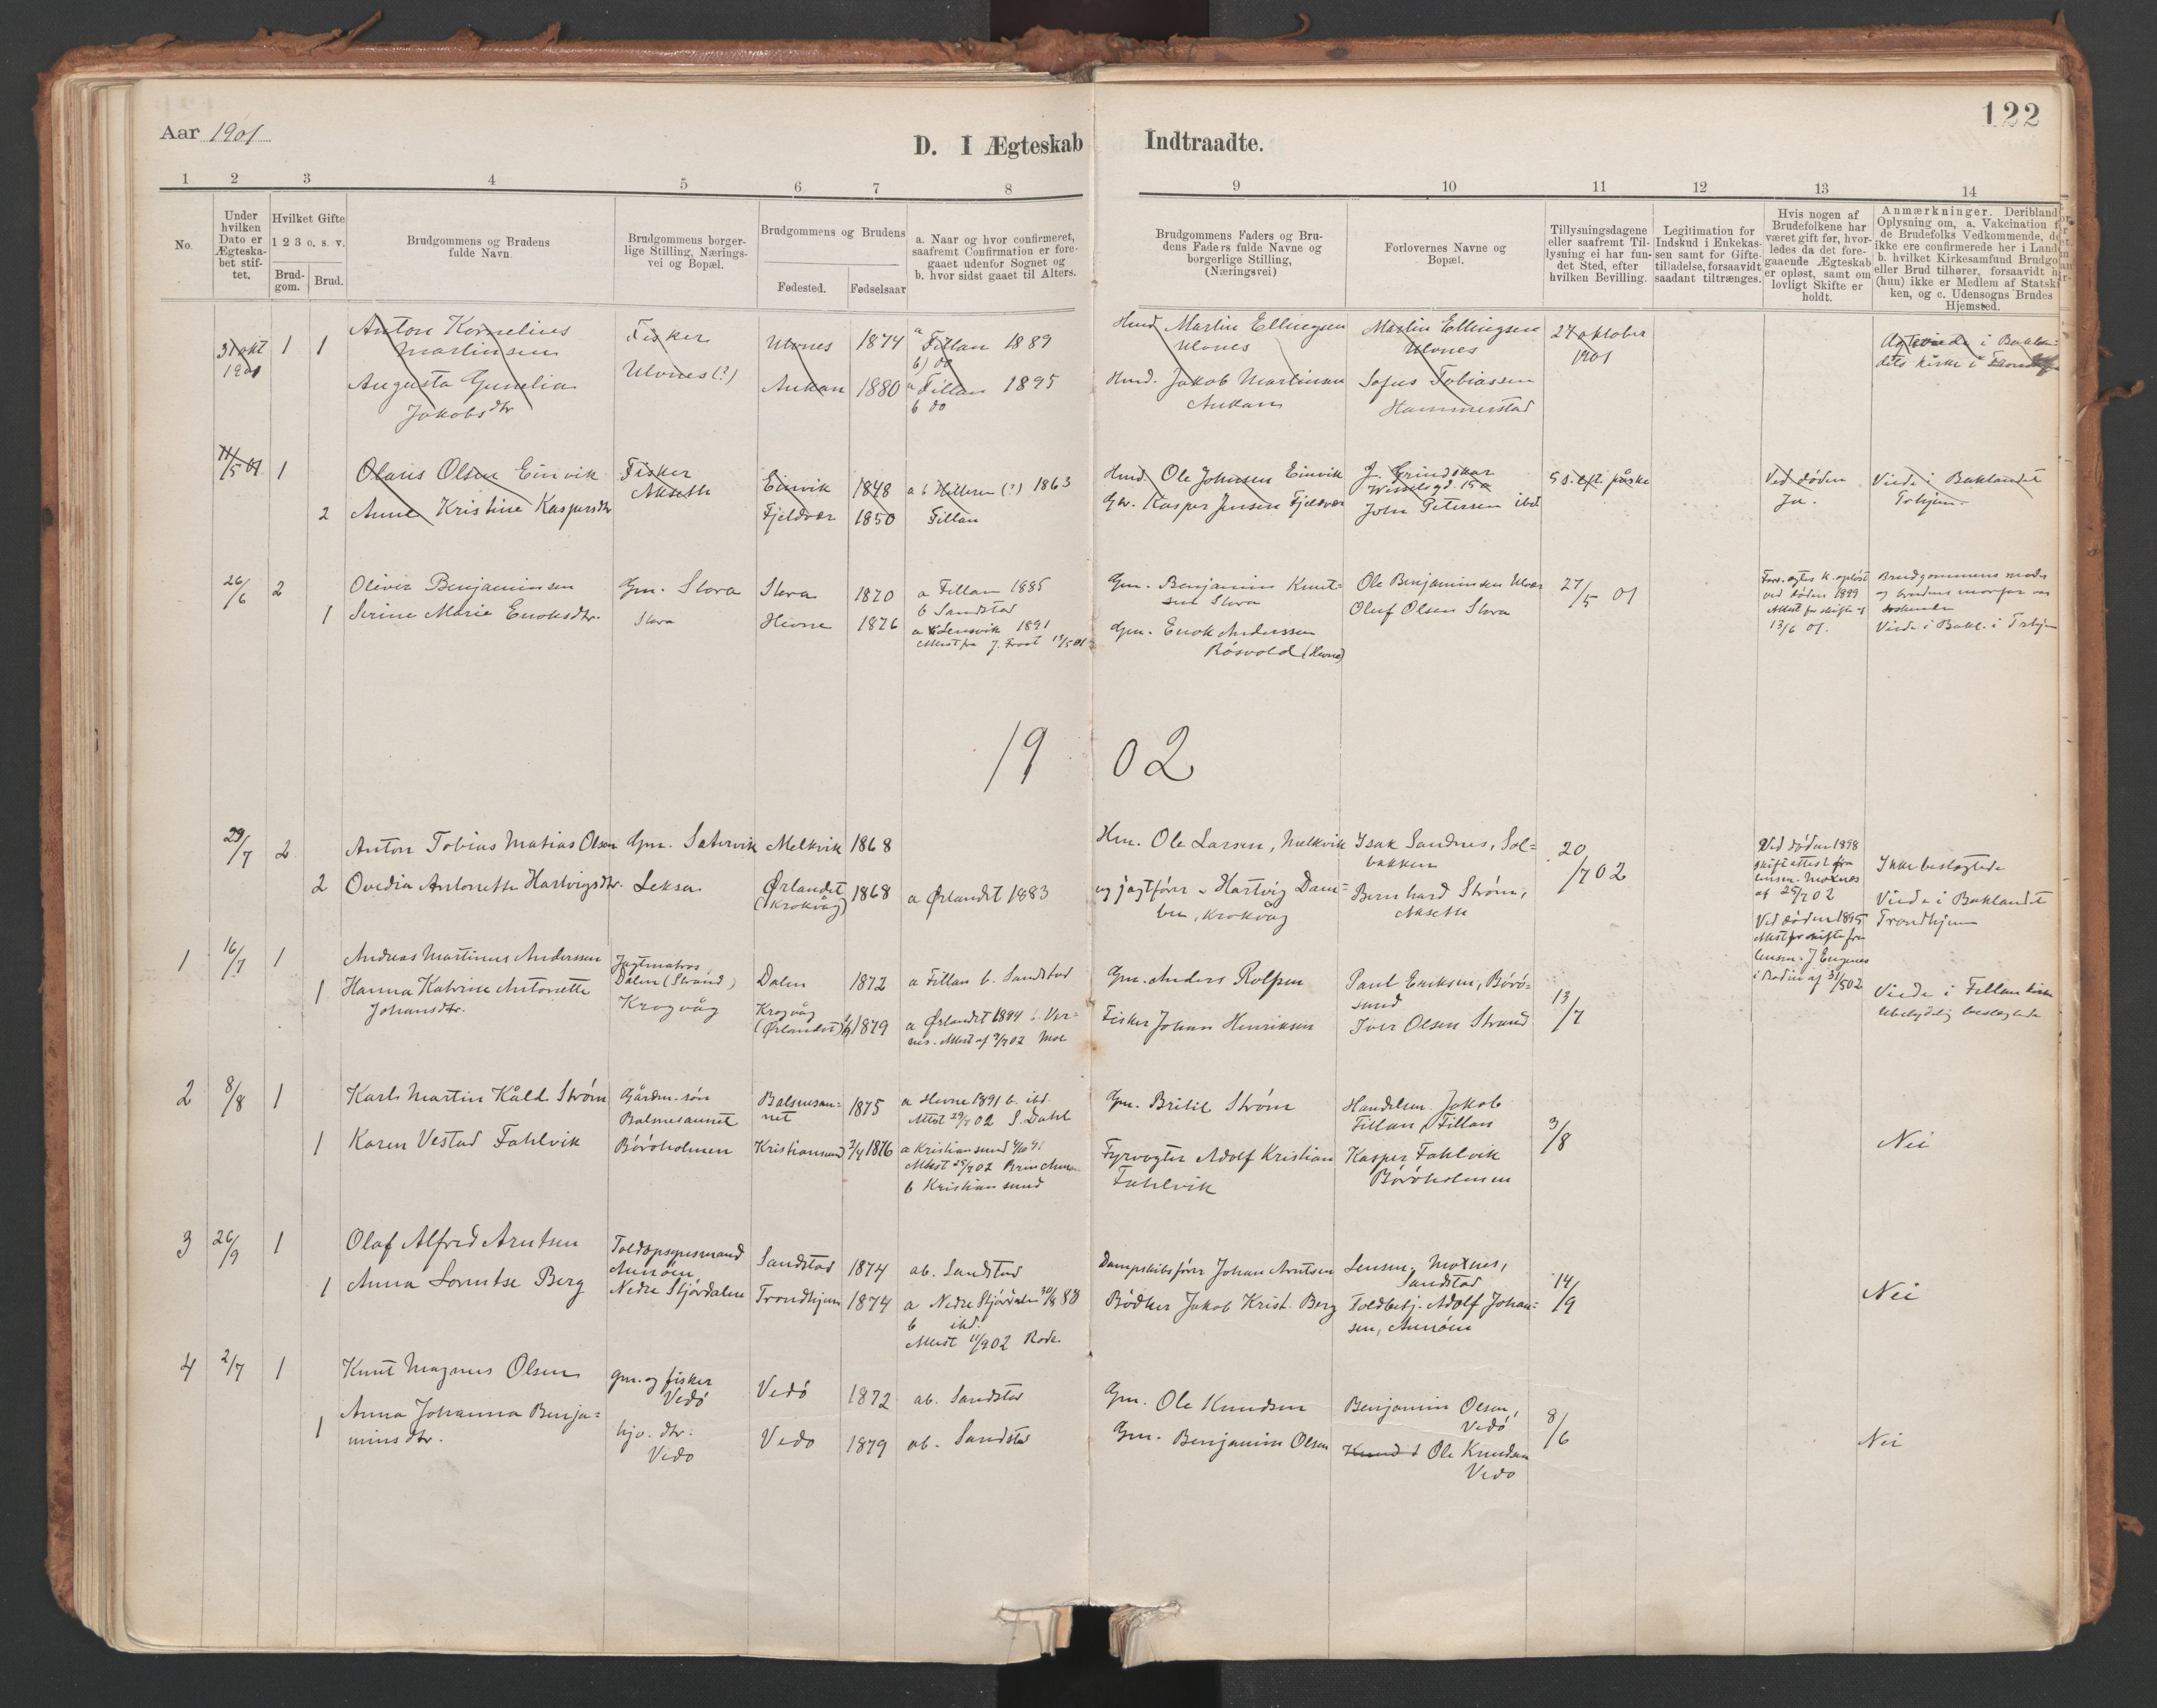 122
Aar 1901
D. I Ægteskab Indtraadte.
1 2 3 4 5 6 7 8 9 10 11 12 13 14
No.
Under hvilken Dato er Ægteskabet stiftet.
Hvilket Gifte
1 2 3 o. s. v.
Brudgom. Brud.
Brudgommens og Brudens fulde Navn.
Brudgommens borgerlige Stilling, Næringsvei og Bopæl.
Brudgommens og Brudens
Fødested. Fødselsaar
a. Naar og hvor confirmeret, saafremt Confirmation er foregaaet udenfor Sognet og b. hvor sidst gaaet til Alters.
Brudgommens Faders og Brudens Faders fulde Navne og borgerlige Stilling, (Næringsvei)
Forlovernes Navne og Bopæl.
Tillysningsdagene eller saafremt Tillysning ei har fundet Sted, efter hvilken Bevilling.
Legitimation for Indskud i Enkekassen samt for Giftetilladelse, forsaavidt saadant tiltrænges.
Hvis nogen af Brudefolkene har været gift før, hvorledes da det foregaaende Ægteskab er opløst, samt om lovligt Skifte er holdt.
Anmærkninger. Deriblandt Oplysning om, a. Vakcination
de Brudefolks Vedkommende,
ikke ere confirmerede her i Land
b. hvilket Kirkesamfund Brudgo
eller Brud tilhører, forsaavidt
(hun) ikke er Medlem af Statski
ken, og c. Udensogns Brudes Hjemsted.
31 okt 1901 1 1
Anton Kornelius Martinsen
Fisker Ulvnes (?)
Ulvnes 1874
a Fillan 1889
b) do
Husm. Martin Ellingsen Ulvnes
Martin Ellingsen Ulvnes
27 oktober 1901
i Baklandets kirke i
Augusta Gunelia Jakobsdtr
Aukan 1880
a Fillan 1895
b do
Husm. Jakob Martinsen Aukan
Sofus Tobiassen Hammerstad
11/5 01 1
Olaus Olsen Einvik
Fisker Akseth
Einvik 1848
a b Hitteren (?) 1863
Husm. Ole Johnsen Einvik
5 s. eft. påske
Ved døden Ja.
Viede i Baklandet Trhjem.
2 Anne Kristine Kaspersdtr
Fjeldvær 1850 Fillan
Kasper Jensen Fjeldvær
John Petersen ibd.
26/6 2
Oliver Benjaminsen
Gm. Slora
Slora 1870
a Fillan 1885
b Sandstad
Gm. Benjamin Knutsen Slora
Ole Benjaminsen
27/5 01
Brudgommens moder og brudens morfar var søskende
Viede i Bakl. i Trhjem
13/6 01.
1 Serine Marie Enoksdtr.
Slora
Hevne 1876
1891
Gm. Enok Anderssen Røsvold (Hevne)
Oluf Olsen Slora
1902
29/7 2
Anton Tobias Matias Olsen
Gm. Sætervik
Melkvik 1868
Hm. Ole Larsen, Melkvik
Isak Sandnes, Solbakken
20/7 02
Ved døden 1898 skifteattest fra lensm. Moxnes af 25/7 02
Ikke beslægtede
Viede i Baklandet Trondhjem
2 Ovedia Antonette Hartvigsdtr.
Leksa
Ørlandet (Krokvåg) 1868
a Ørlandet 1883
og jagtfører Hartvig
Krokvåg
Bernhard Strøm, Akseth
Ved døden 1895
Attest for skifte fra lensm. J
af 31/5 02
1 16/7 1
Andreas Martinus Anderssen
Jagtmatros, Dalen (Strand)
Dalen 1872
a Fillan b. Sandstad
Gm. Anders Rolfsen
Paul Eriksen, Børøsund
13/7
Viede i Fillan kirke
ubetydelig beslægtede
1 Hanna Katrine Antonette Johansdtr.
Krogvåg
Krogvåg (Ørlandet) 1879
a Ørlandet 1894
Fisker Johan Henriksen
Iver Olsen Strand
2 8/8 1
Karl Martin Kåld Strøm
Gårdm. søn Balmesaunet
1875
a Hevne 1891 b. ibd.
Attest 29/7 02 S. Dahl
Gm. Strøm
Handelsm. Jakob Fillan, Fillan
3/8
Nei
1 Karen Vestad Fahlvik
Børøholmen
Kristiansund 1876
a Kristiansund
Attest 25/7 02
b Kristiansund
Fyrvogter Adolf Kristian Fahlvik
Kasper Fahlvik Børøholmen
3 26/9 1
Olaf Alfred Arntsen
Toldopsynsmand
Sandstad 1874
ab. Sandstad
Dampskibsfører Johan Arntsen
Lensm. Moxnes, Sandstad
14/9
Nei
1 Anna Lorentse Berg
Nedre Stjørdalen
Trondhjem 1874
a Nedre Stjørdalen
b ibd.
Attest 11/9 02
Bødker Jakob Krist. Berg
Toldbetj. Adolf Johansen,
4 2/7 1
Knut Magnus Olsen
gm. og fisker Vedø
Vedø 1872
ab. Sandstad
Gm. Ole Knudsen
Benjamin Olsen, Vedø
8/6
Nei
1 Anna Johanna Benjaminsdtr.
hjv. dtr. Vedø
Vedø 1879
ab. Sandstad
Gm. Benjamin Olsen
Ole Knudsen Vedø